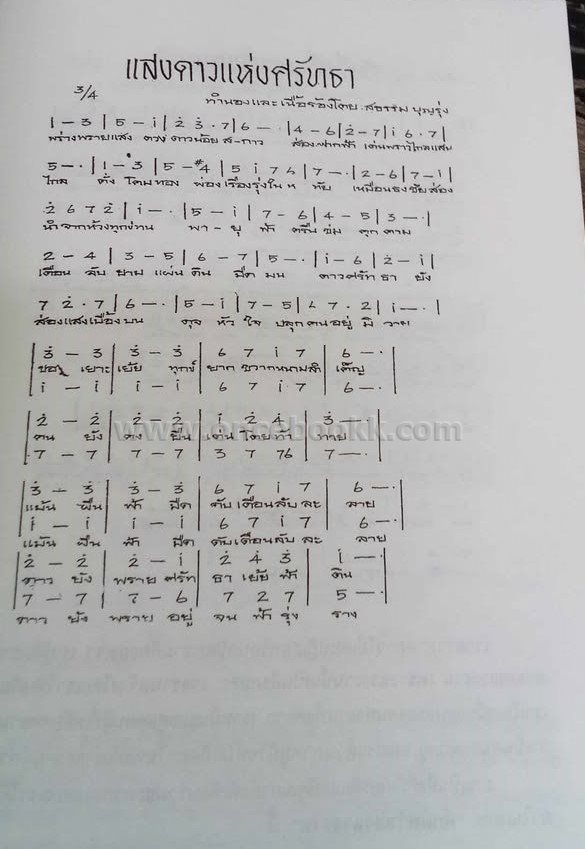 แสงดาวแห่งศรัทธา
3/4
ทำนองและเนื้อร้องโดย. สุธรรม บุญรุ่ง
1 – 3 | 5 – i | 2̇ 3̇ · 7 | 6 – · | 4 – 6 | 2̇ – 7 | i 6 · 7 |
พร่างพรายแสง ดวง ดาวน้อย ส-กาว ส่องฟากฟ้า เด่นพราวไกลแสน
5 – · | 1 – 3 | 5 – #4 | 5 i 7 6 | 7 – · | 2 – 6 | 7 – i |
ไกล ดั่ง โคมทอง ผ่องเรืองรุ้งใน ห ทัย เหมือนธงชัย ส่อง
2̇ 6 7 2̇ | i – · | 5 – i | 7 – 6 | 4 – 5 | 3 – · |
นำจากห้วงทุกข์ทน พา – ยุ ฟ้า ครืน ข่ม คุก คาม
2 – 4 | 3 – 5 | 6 – 7 | 5 – · | i – 6 | 2̇ – i |
เดือน ลับ ยาม แผ่น ดิน มืด มน ดาวศรัท ธา ยัง
7 2̇ · 7 | 6 – · | 5 – i | 7 – 5 | 6 7 · 2 | i – · |
ส่องแสงเบื้องบน ดุจ หัว ใจ ปลุกคนอยู่ มิ วาย
| 3̇ – 3̇ | 3̇ – 3̇ | 6 7 i 7 | 6 – · |
ขอ เยาะ เย้ย ทุกข์ ยาก ขวากหนามลำ เค็ญ
| i – i | i – i | 6 7 i 7 | 6 – · |
| 2̇ – 2̇ | 2̇ – 2̇ | i 2̇ 4̇ | 3̇ – · |
คน ยัง คง ยืน เด่น โดยท้า ทาย
| 7 – 7 | 7 – 7 | 3 7 76 | 7 – · |
www.oncebookk.com
| 3̇ – 3̇ | 3̇ – 3̇ | 6 7 i 7 | 6 – · |
แม้น ผืน ฟ้า มืด ดับเดือนลับ ละ ลาย
| i – i | i – i | 6 7 i 7 | 6 – · |
แม้น ผืน ฟ้า มืด ดับเดือนลับ ละ ลาย
| 2̇ – 2̇ | 2̇ – i | 2̇ 4̇ 3̇ | i – · |
ดาว ยัง พราย ศรัท ธา เย้ย ฟ้า ดิน
| 7 – 7 | 7 – 6 | 7 2 7 | 5 – · |
ดาว ยัง พราย อยู่ จน ฟ้า รุ่ง ราง